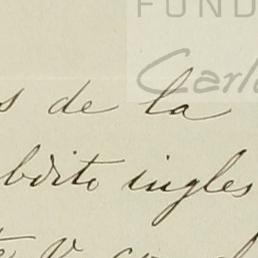 FUND
Carla
s de la
bdito ingles